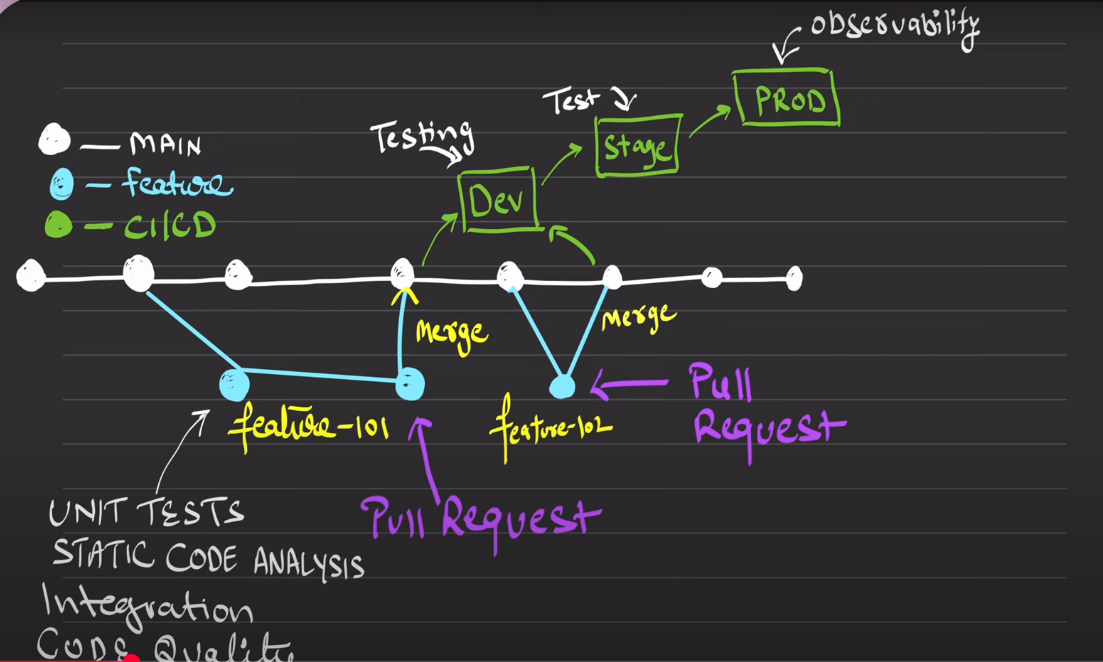 observability
PROD
Test
Stage
Testing
Dev
— MAIN
— feature
— CI/CD
Merge
Merge
feature-101
feature-102
Pull
Request
Pull Request
UNIT TESTS
STATIC CODE ANALYSIS
Integration
CODE Quality